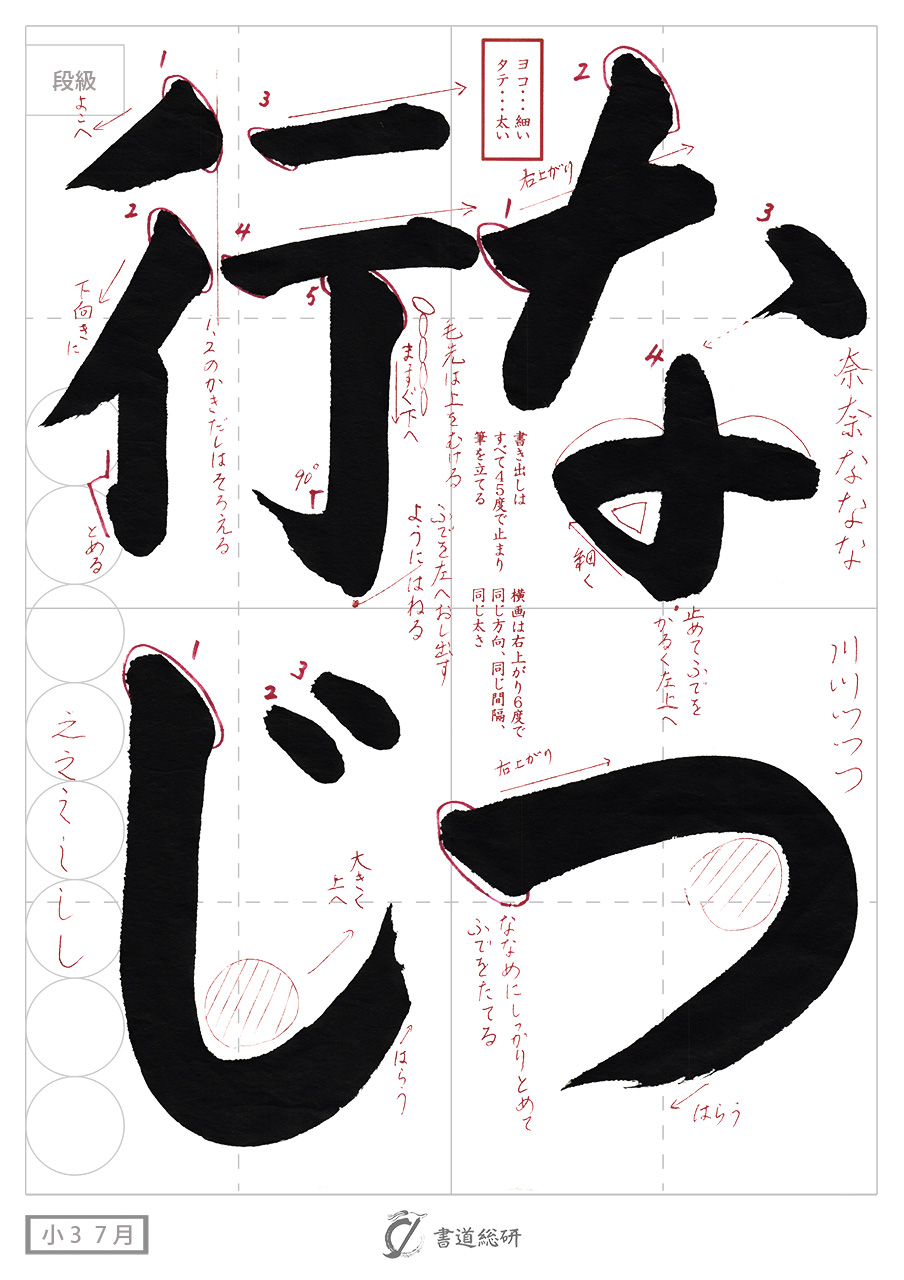 なつ
行じ
段級
ヨコ・・・細い
タテ・・・太い
右上がり
1
2
3
4
細く
止めてふでを
かるく左上へ
奈奈ななな
書き出しは
すべて45度で止まり
筆を立てる
横画は右上がり6度で
同じ方向、同じ間隔、
同じ太さ
川川つつつ
右上がり
ななめにしっかりとめて
ふでをたてる
はらう
1
よこへ
2
下向きに
とめる
1、2のかきだしはそろえる
3
4
5
毛先は上をむける
ますぐ下へ
90°
ふでを左へおし出す
ようにはねる
1
2
3
大きく
上へ
はらう
小3 7月
書道総研